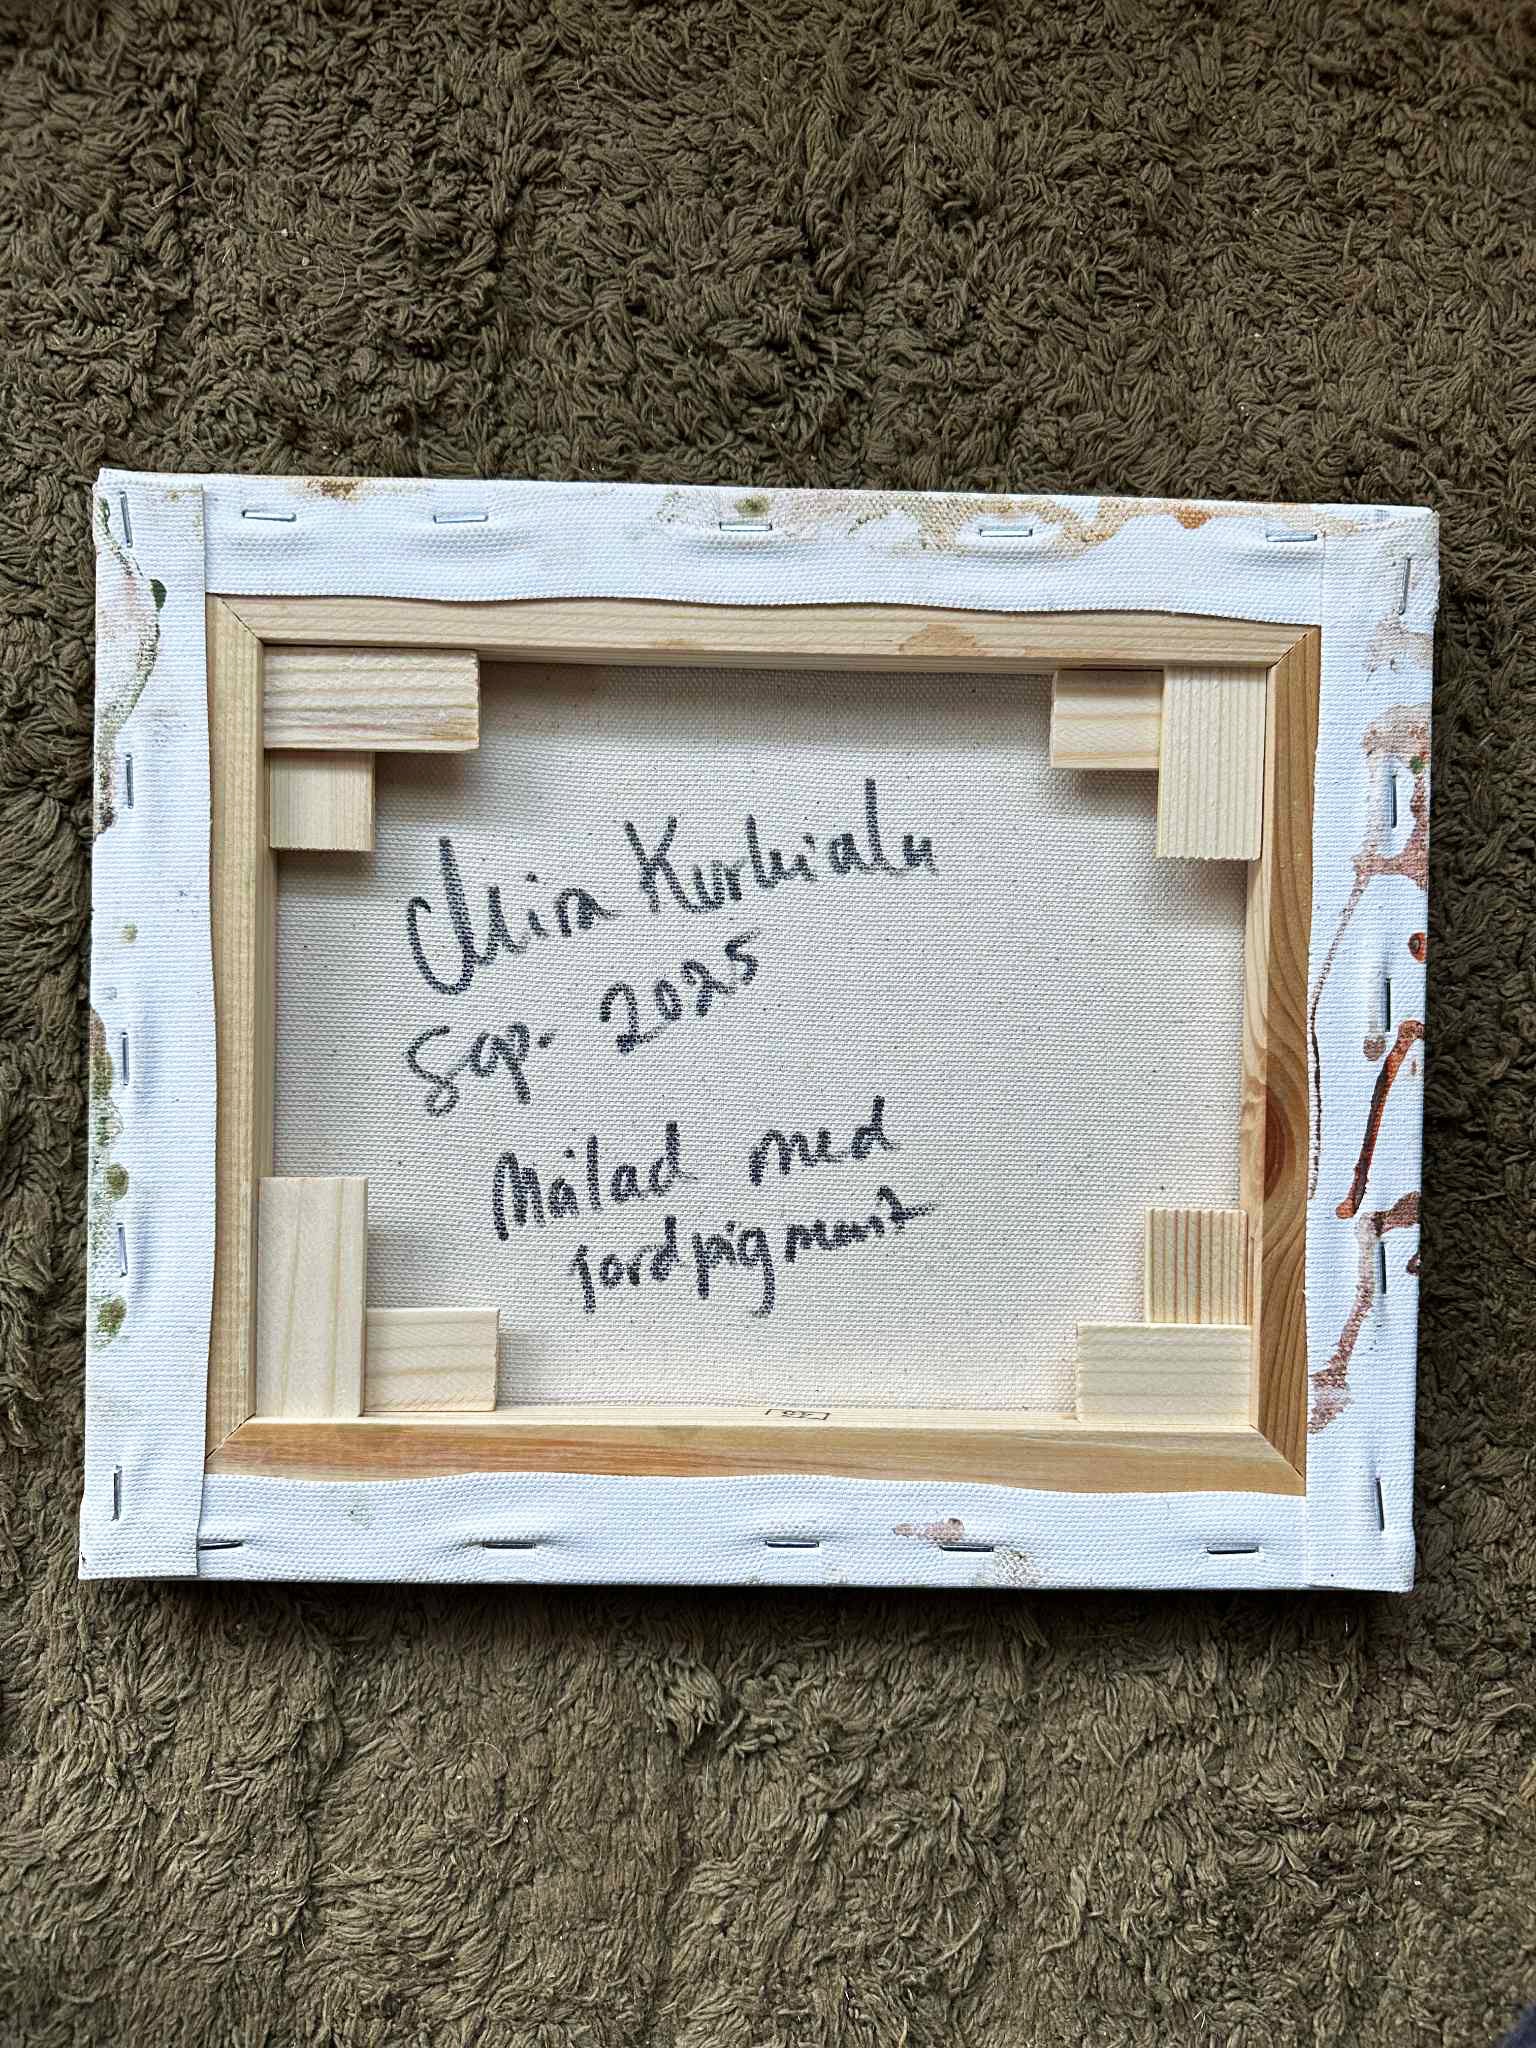 Mira Kurkialu
Sep. 2025
Målad med
jordpigment